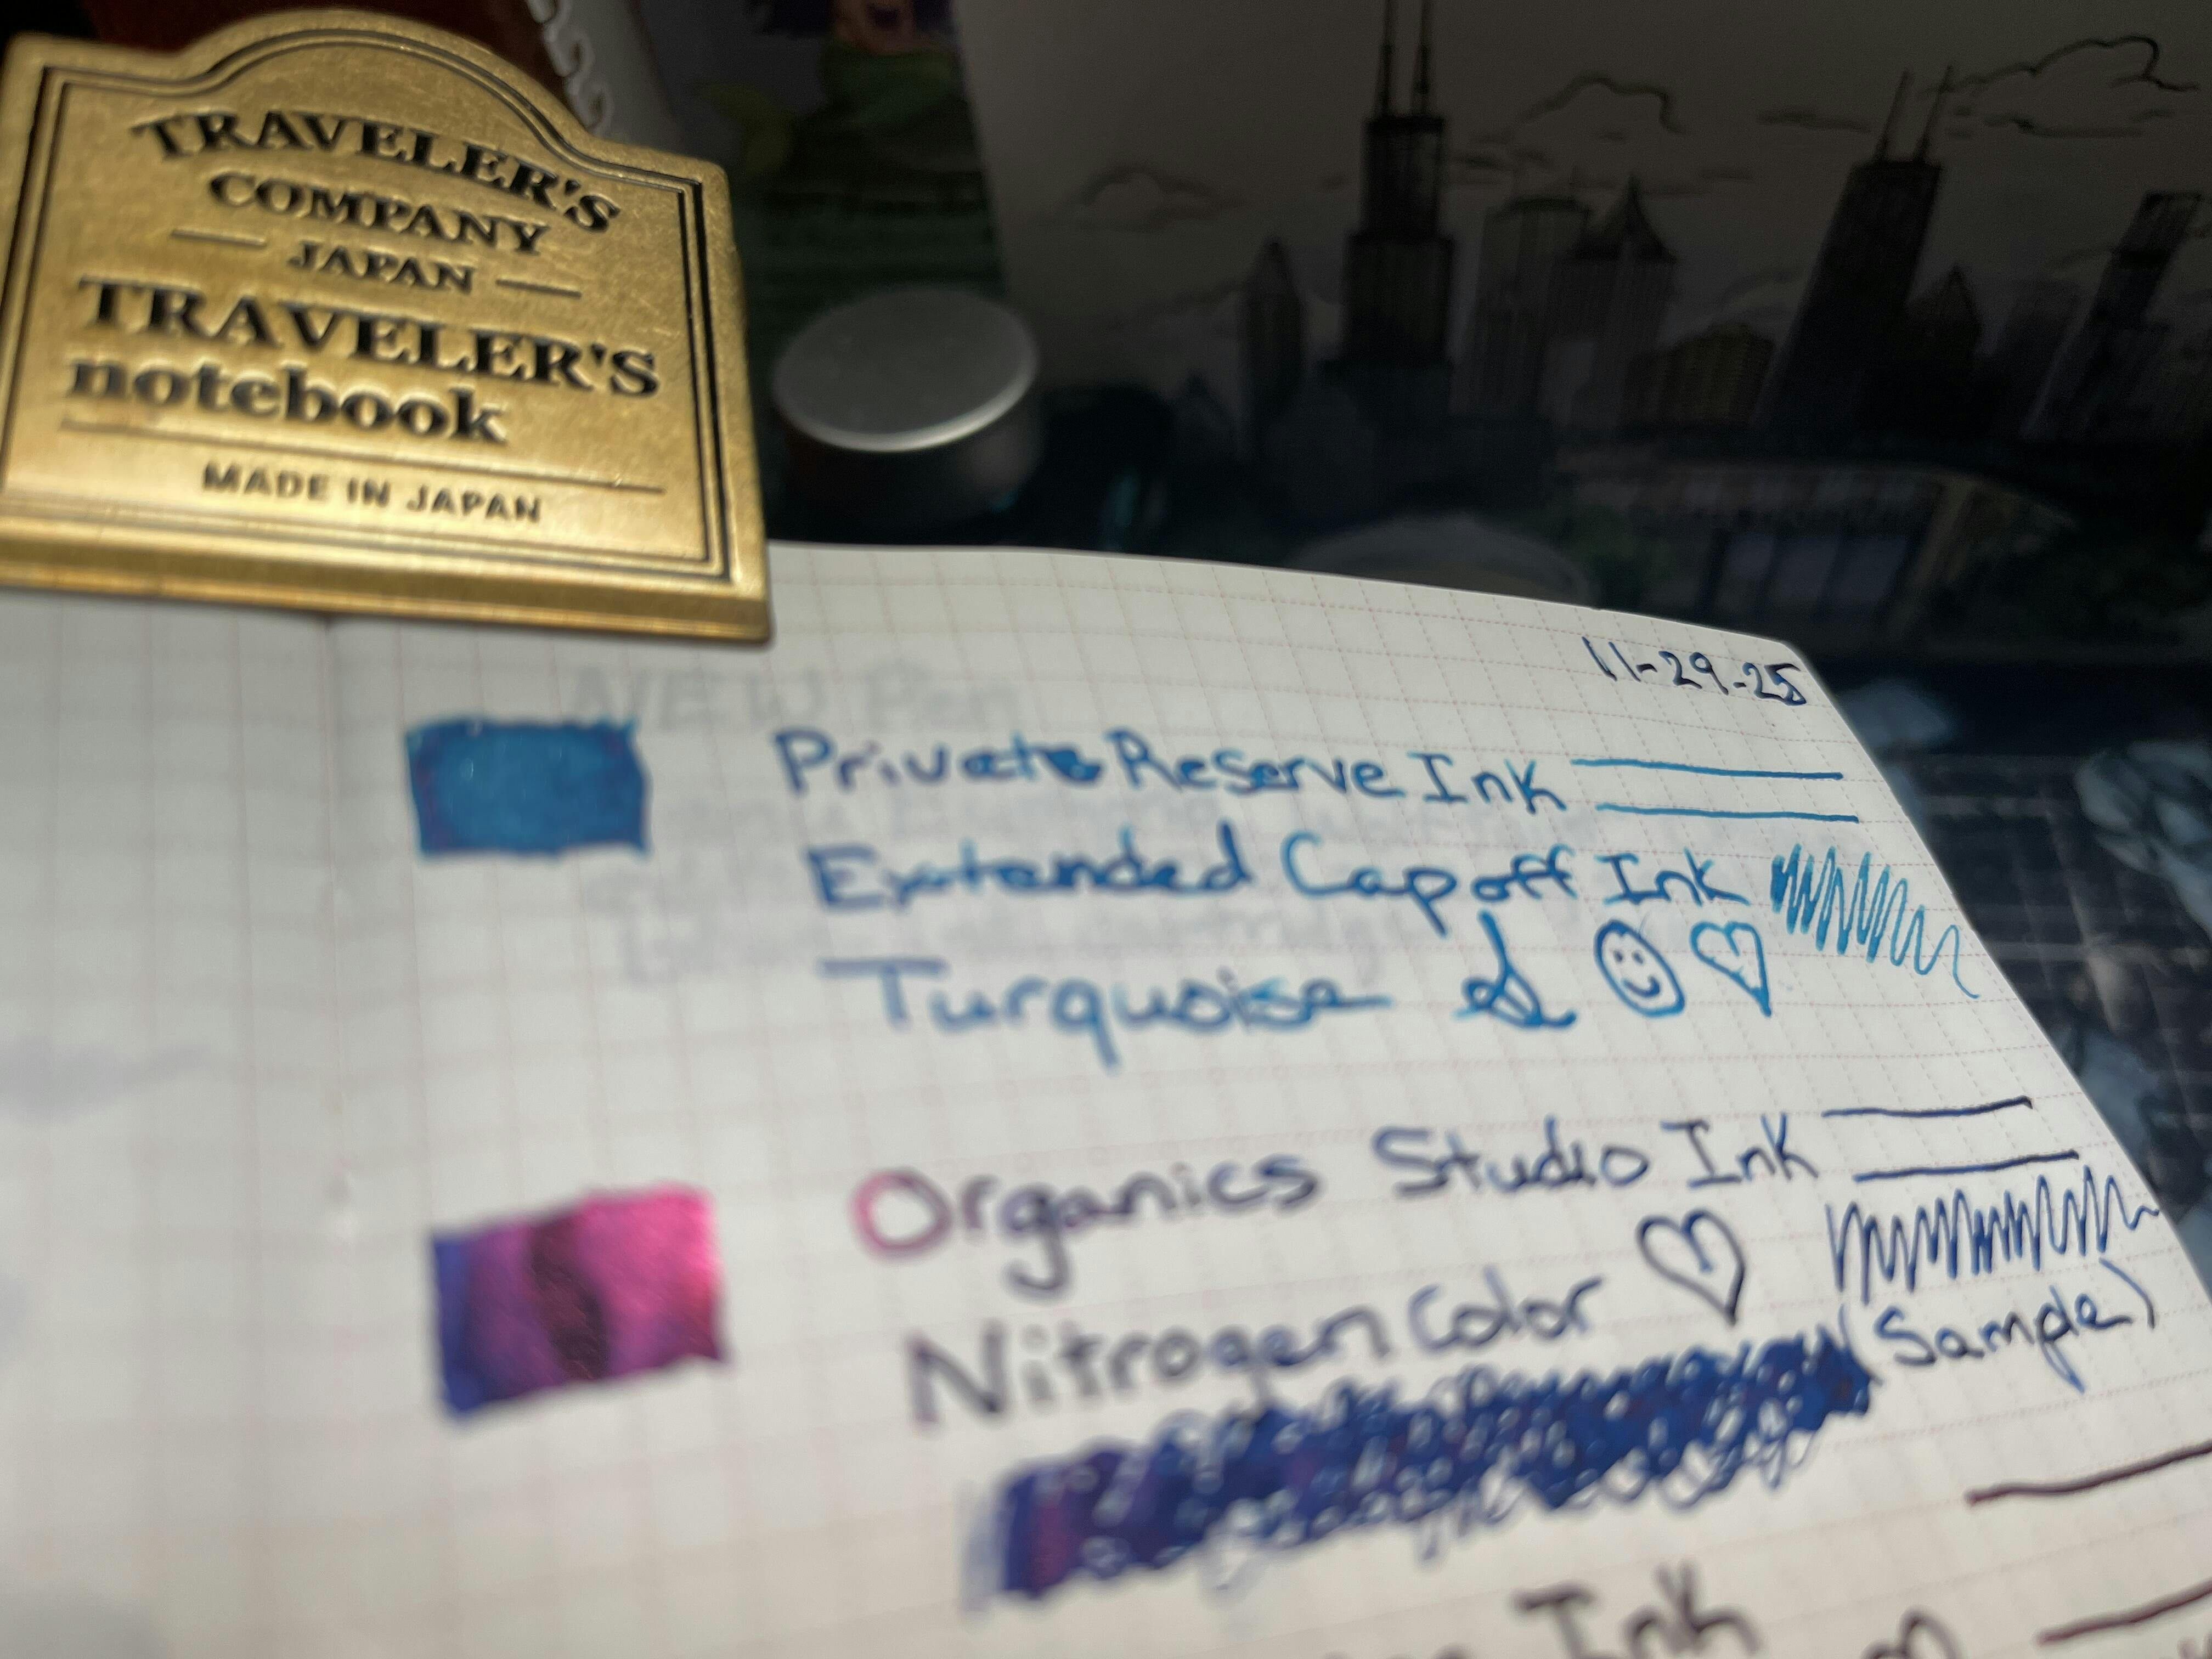 TRAVELER'S
COMPANY
JAPAN
TRAVELER'S
notebook
MADE IN JAPAN
11-29-25
NEW Pen
Private Reserve Ink
Extended Cap off Ink
Turquoise
Organics Studio Ink
Nitrogen Color
(Sample)
Ink